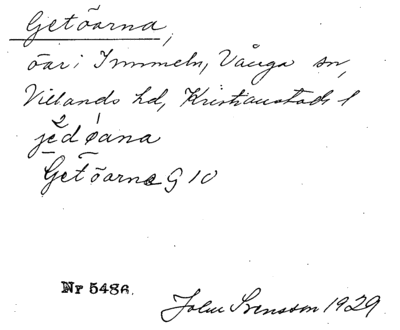 Getöarna,
öar i Immeln, Vånga sn,
Villands hd, Kristianstads l
Getöarna G 10
Nr 5486.
John Svensson 1929